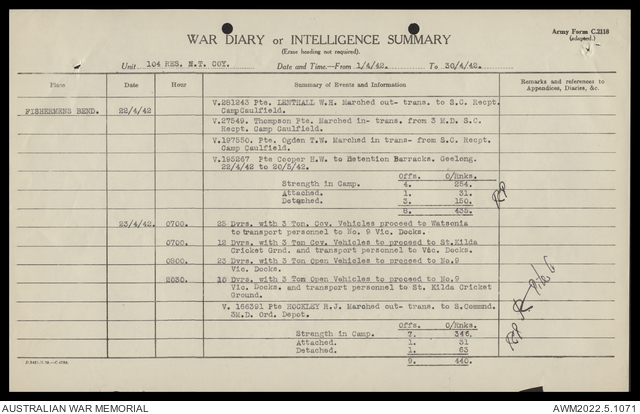 WAR DIARY or INTELLIGENCE SUMMARY
(Erase heading not required).
Army Form C.2118
(adapted.)
Unit 104 RES. M.T. COY. Date and Time—From 1/4/42. To 30/4/42.
Place Date Hour Summary of Events and Information Remarks and references to Appendices, Diaries, &c.
FISHERMENS BEND. 22/4/42 V.281243 Pte. LENTHALL W.H. Marched out- trans. to S.C. Recpt.
Camp Caulfield.
V.27549. Thompson Pte. Marched in- trans. from 3 M.D. S.C.
Recpt. Camp Caulfield.
V.197550. Pte. Ogden T.W. Marched in trans- from S.C. Recpt.
Camp Caulfield.
V.195267 Pte Cooper H.W. to Detention Barracks. Geelong.
22/4/42 to 20/5/42.
Offs. O/Rnks.
Strength in Camp. 4. 254.
Attached. 1. 31.
Detached. 3. 150.
8. 435.
23/4/42 0700. 25 Dvrs. with 3 Ton. Cov. Vehicles proceed to Watsonia
to transport personnel to No. 9 Vic. Docks.
0700. 12 Dvrs. with 3 Ton Cov. Vehicles to proceed to St.Kilda
Cricket Grnd. and transport personnel to Vic. Docks.
0800. 23 Dvrs. with 3 Ton Open Vehicles to proceed to No.9
Vic. Docks.
2030. 15 Dvrs. with 3 Tom Open Vehicles to proceed to No.9
Vic. Docks, and transport personnel to St. Kilda Cricket
Ground.
V. 166391 Pte HOCKLEY R.J. Marched out- trans. to S.Commd.
3M.D. Ord. Depot.
Offs. O/Rnks.
Strength in Camp. 7. 346.
Attached. 1. 31
Detached. 1. 63
9. 440.
AUSTRALIAN WAR MEMORIAL
AWM2022.5.1071